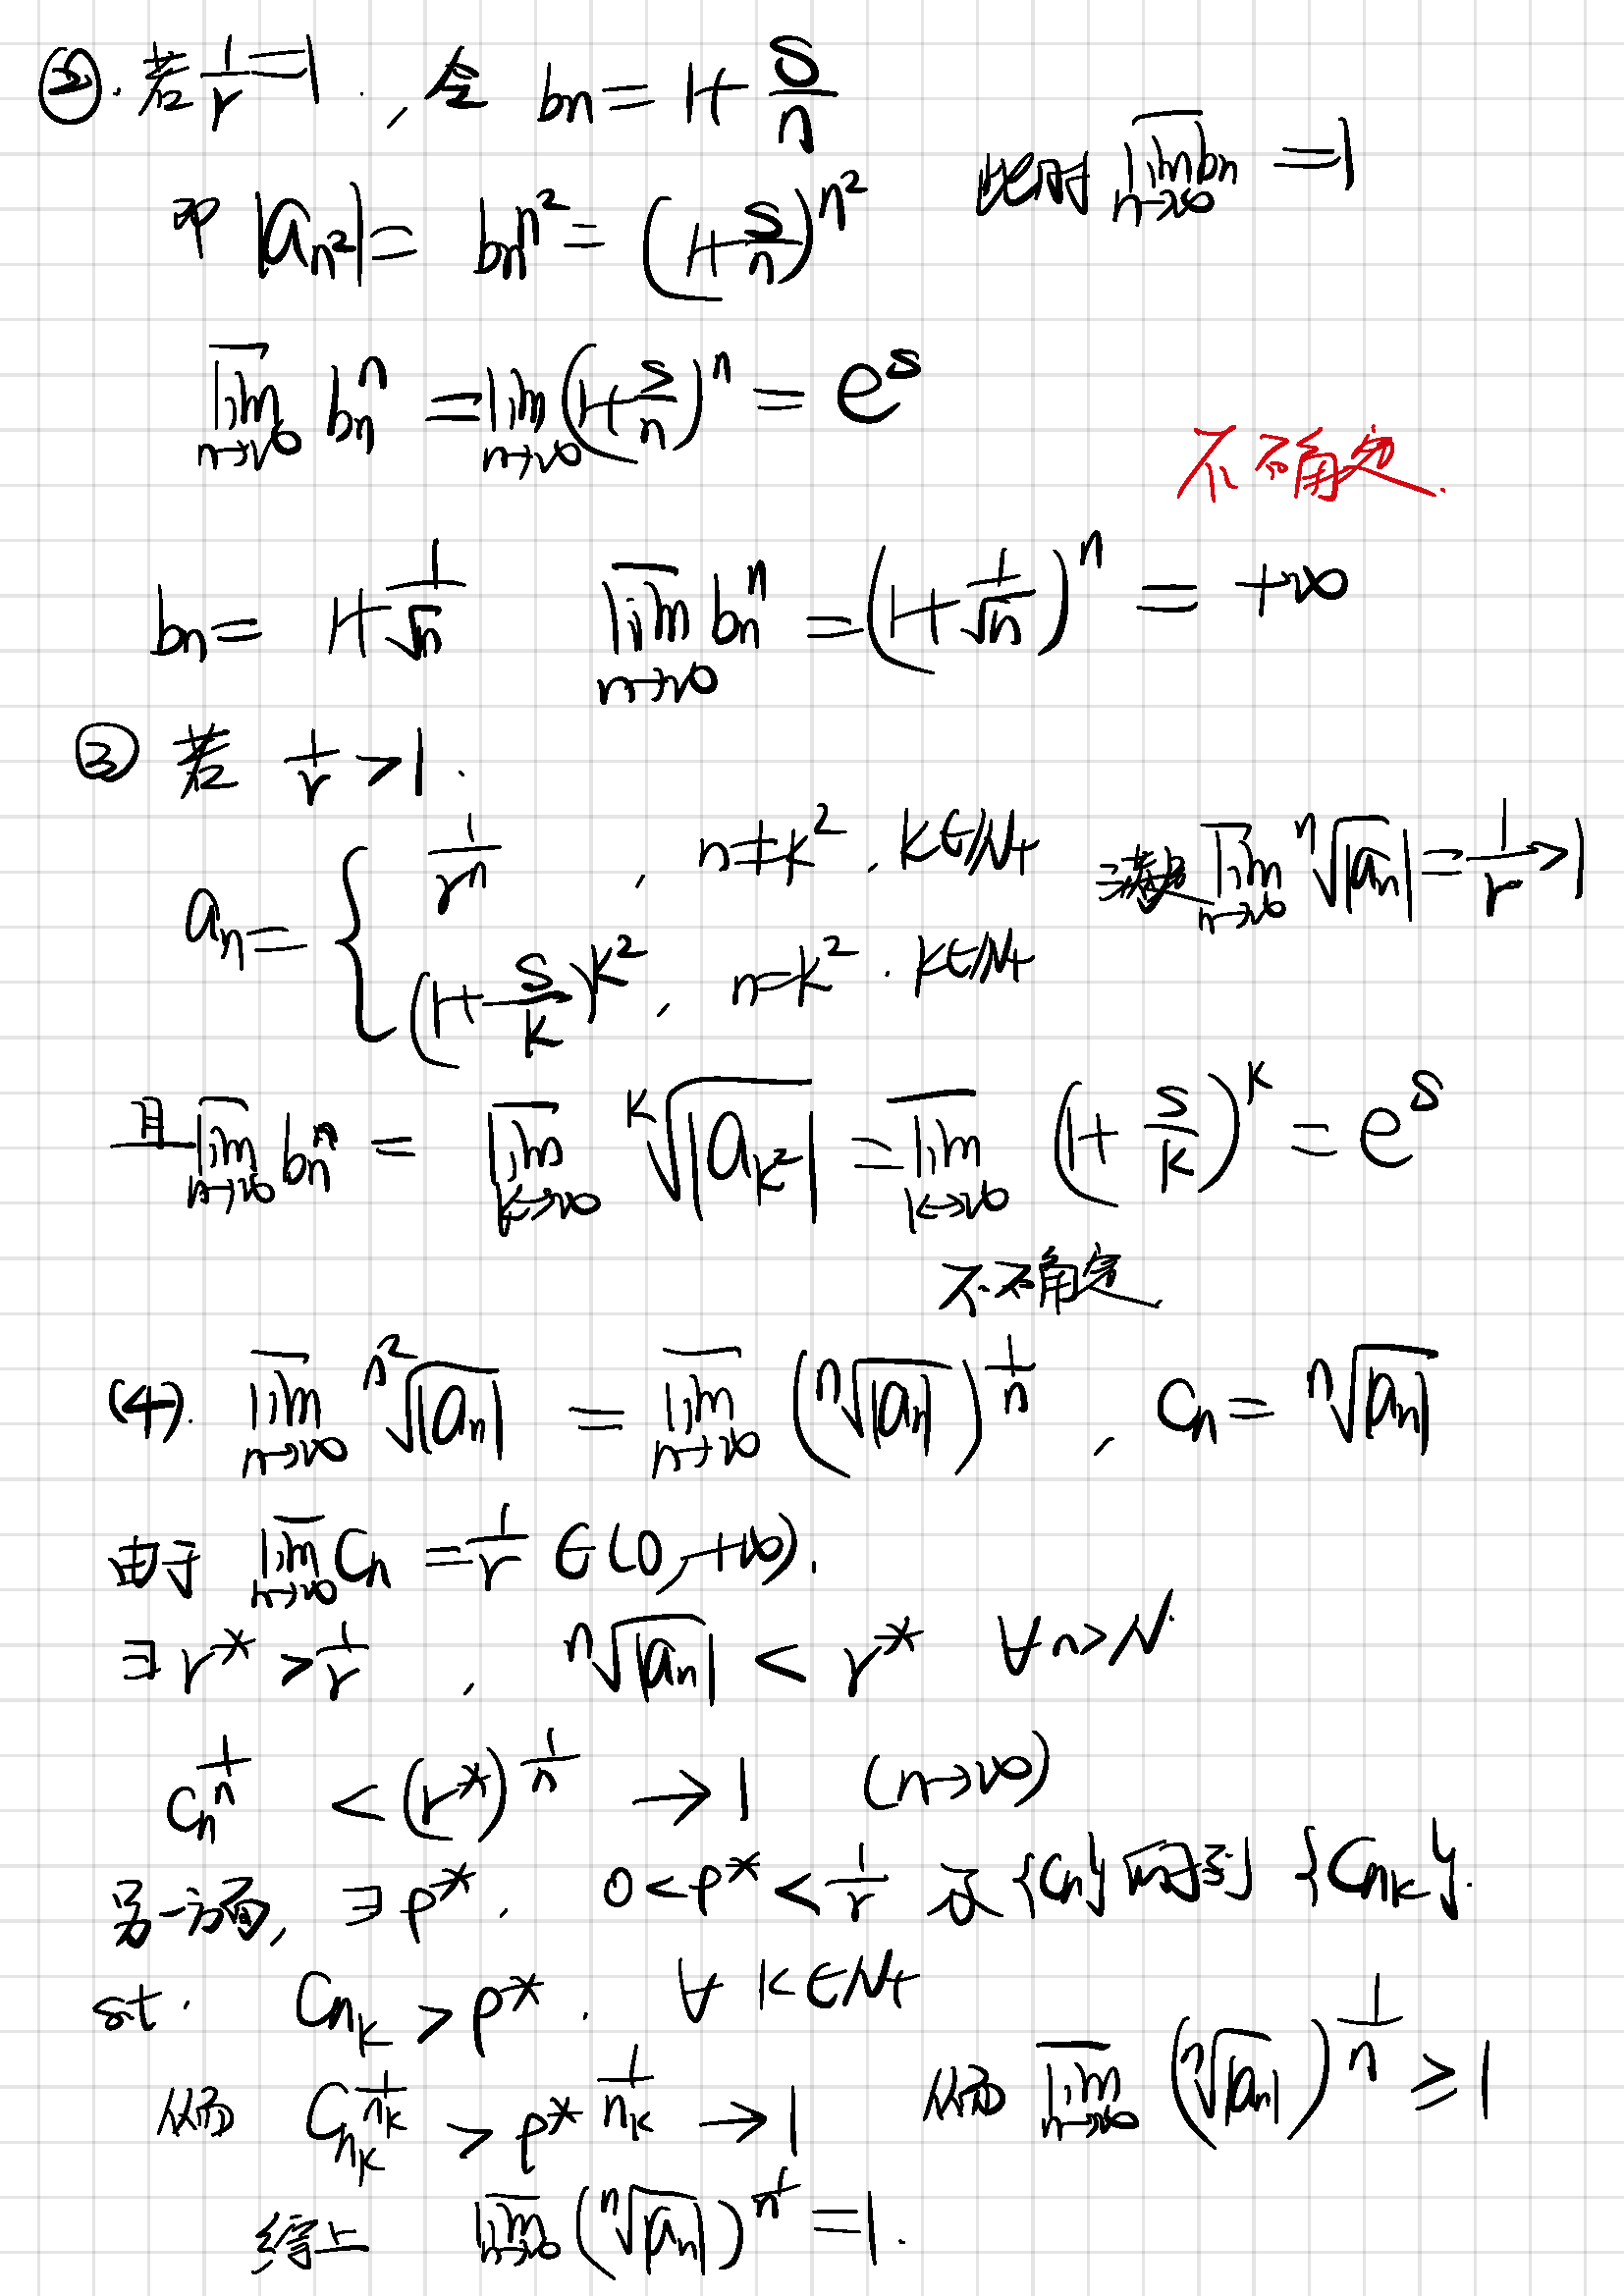 ②. 若 1/r = 1 , 令 bn = 1 + s/n
此时 \overline{lim}_{n→∞} bn = 1
即 |a_{n²}| = bn^{n²} = (1 + s/n)^{n²}
\overline{lim}_{n→∞} bn^n = lim_{n→∞} (1 + s/n)^n = e^s
不确定.
bn = 1 + 1/√n   \overline{lim}_{n→∞} bn^n = (1 + 1/√n)^n = +∞
③ 若 1/r > 1 .
an = { 1/r^n , n ≠ k² , k∈N+
(1 + s/k)^{k²} , n = k² . k∈N+
满足 \overline{lim}_{n→∞} ⁿ√|an| = 1/r > 1
且 \overline{lim}_{n→∞} bn^n = \overline{lim}_{k→∞} ᵏ√|a_{k²}| = \overline{lim}_{k→∞} (1 + s/k)^k = e^s
不确定
(4). \overline{lim}_{n→∞} ^{n²}√|an| = \overline{lim}_{n→∞} (ⁿ√|an|)^{1/n} , Cn = ⁿ√|an|
由于 \overline{lim}_{n→∞} Cn = 1/r ∈ (0, +∞).
∃ r* > 1/r , ⁿ√|an| < r* ∀ n > N
Cn^{1/n} < (r*)^{1/n} → 1 (n→∞)
另一方面, ∃ ρ* , 0 < ρ* < 1/r 及 {Cn} 的子列 {C_{nk}}.
st. C_{nk} > ρ* . ∀ k∈N+
从而 C_{nk}^{1/nk} > ρ*^{1/nk} → 1   从而 \overline{lim}_{n→∞} (ⁿ√|an|)^{1/n} ≥ 1
综上 \overline{lim}_{n→∞} (ⁿ√|an|)^{1/n} = 1.